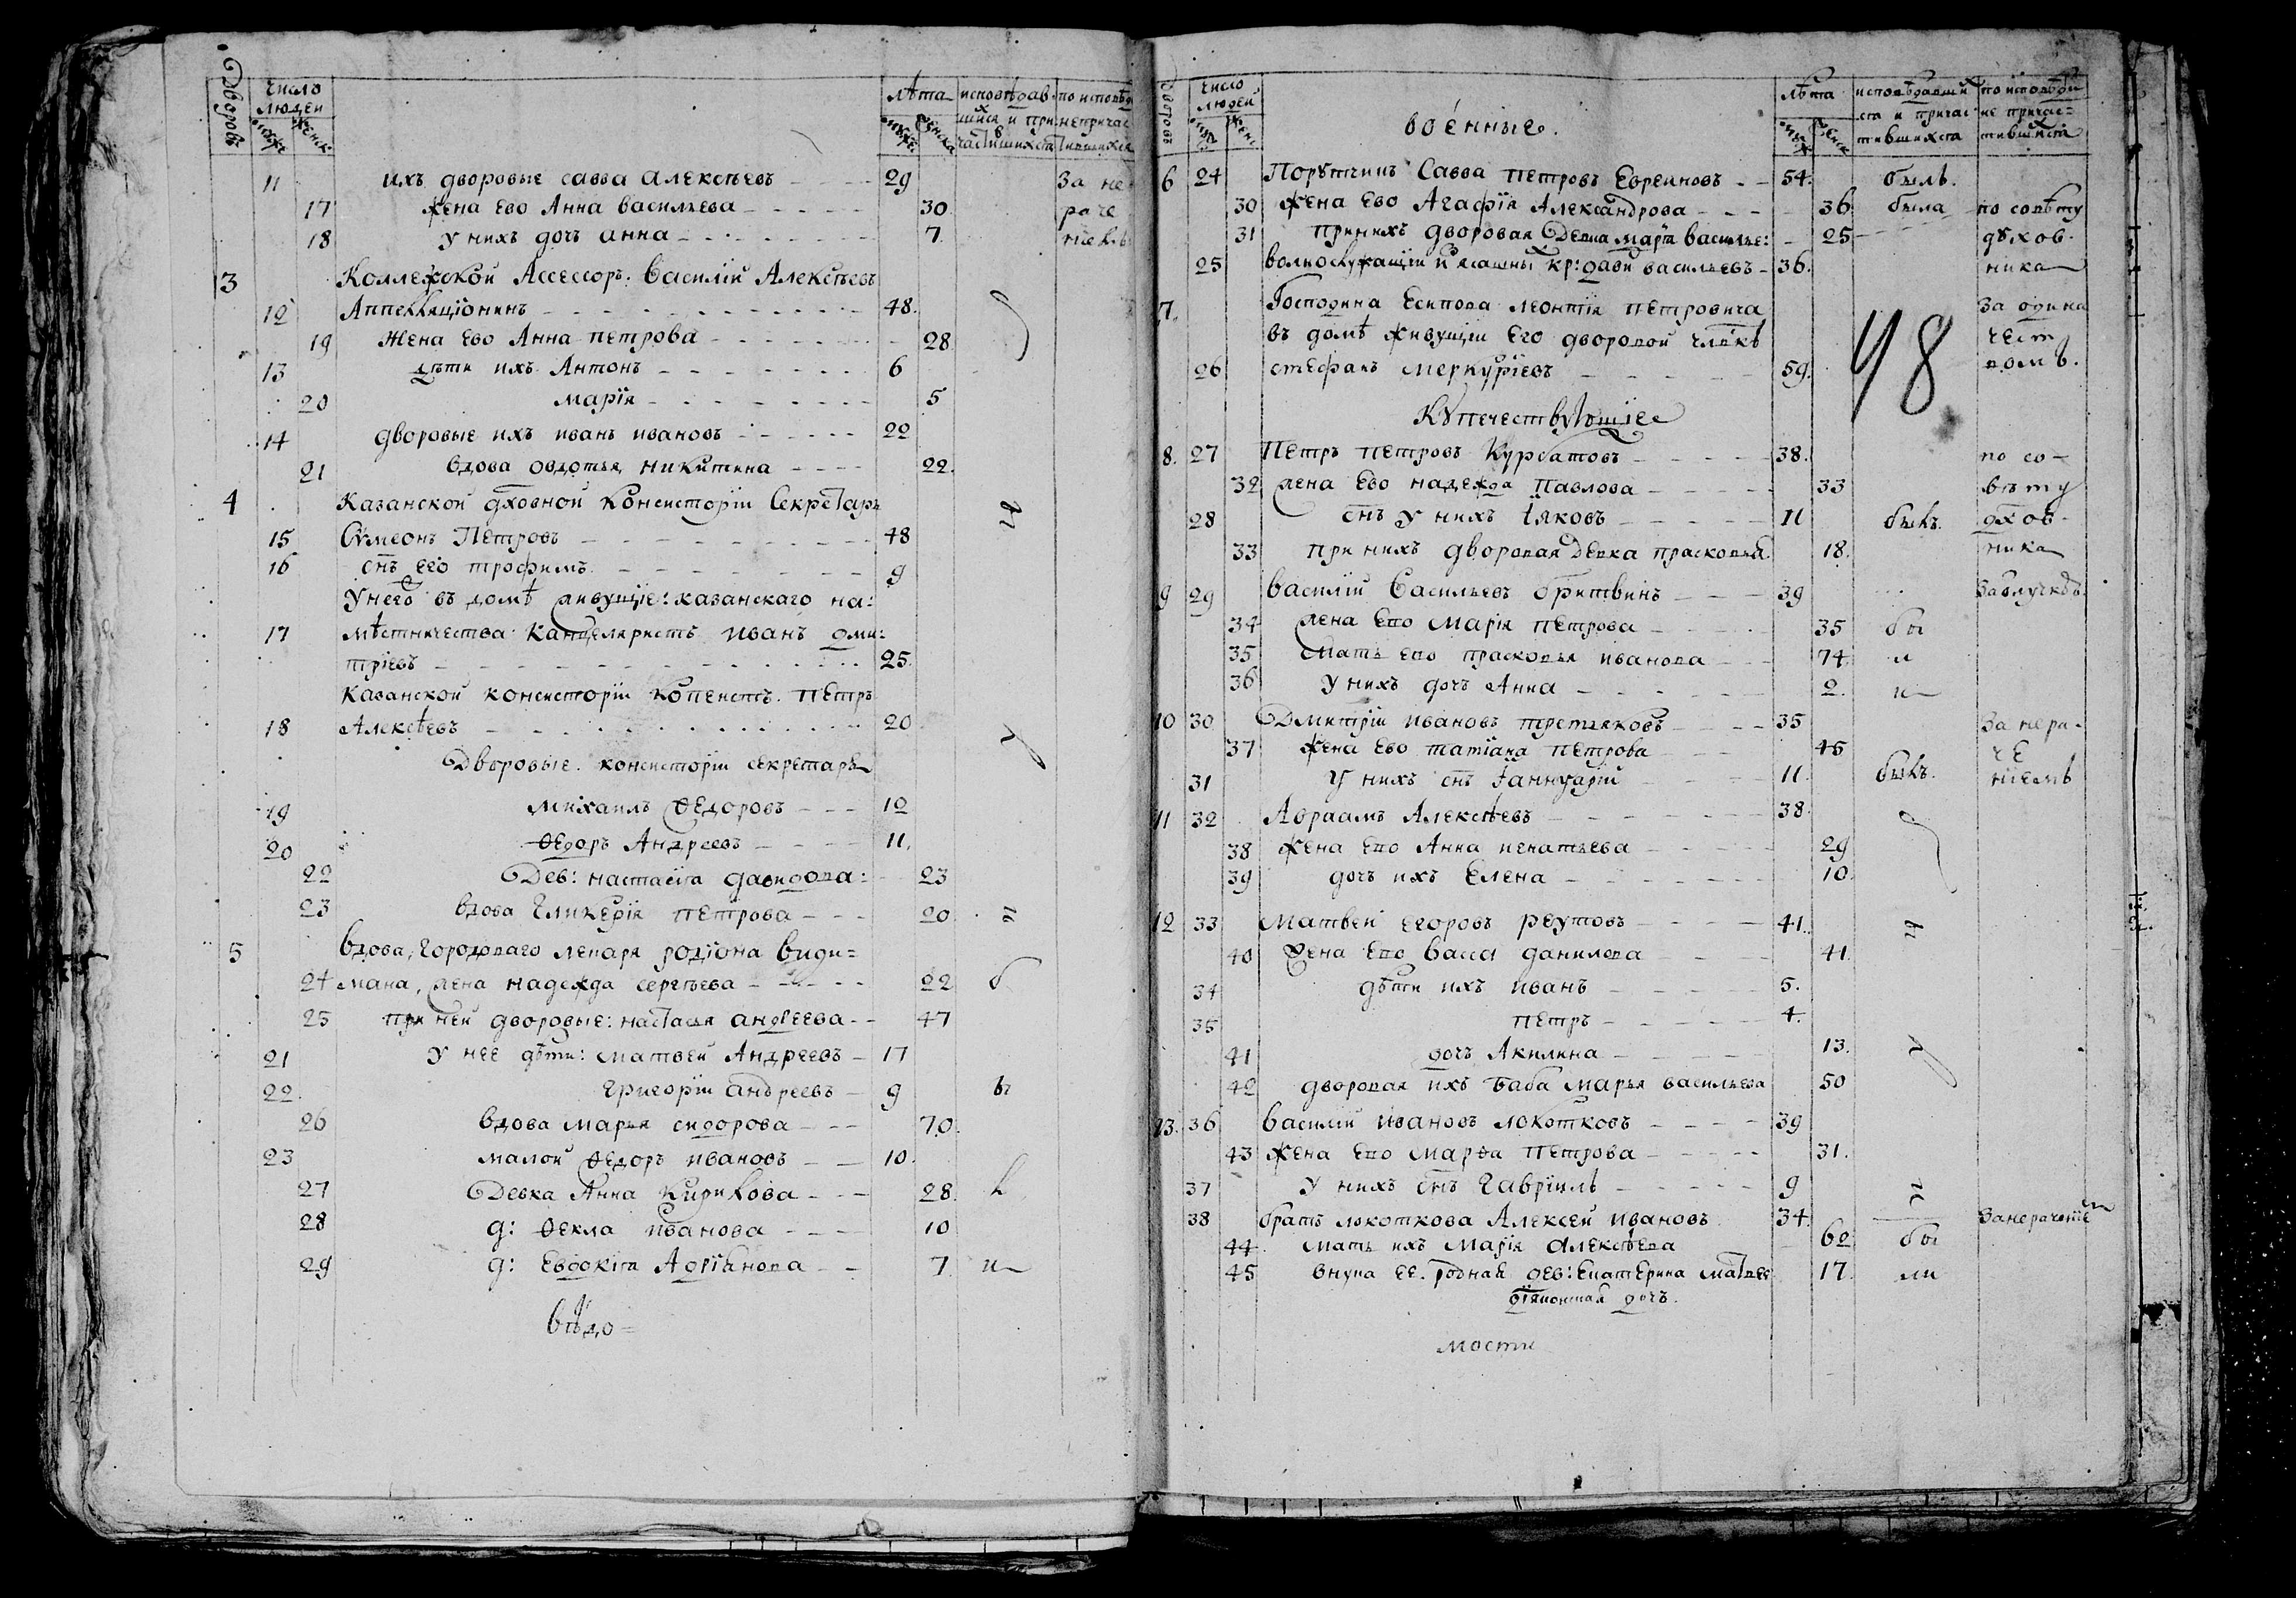 Дворовъ Число людей мужс. женск. лѣта мужс. женска исповѣдавшихся и причастившихся по исповѣди непричастившихся
11 ихъ дворовые савва алексѣевъ 29 за не
17 жена ево Анна васильева 30 раче
18 у нихъ дочь анна 7 ніемъ
3 Коллежской Ассессоръ: Василій Алексѣевъ
12 Аппелляціонинъ 48.
19 жена ево Анна петрова 28
13 дѣти ихъ Антонъ 6
20 марія 5
14 дворовые ихъ иванъ ивановъ 22
21 вдова овдотья никитина 22.
4 Казанской дховной Консисторіи Секретарь
15 Сѵмеонъ Петровъ 48
16 снъ его трофимъ 9
У него въ домѣ живущіе: казанскаго на:
17 мѣстничества канцеляристъ иванъ дми:
тріевъ 25.
казанской консисторіи копеистъ. петръ
18 Алексѣевъ 20
Дворовые консисторіи секретаря
19 михаилъ Ѳедоровъ 12
20 Ѳедоръ Андреевъ 11.
22 Дев: настасіа давидова: 23
23 вдова Гликерія петрова 20
5 вдова, городоваго лекаря родіона види=
24 мана, жена надежда сергѣева 22 б
25 при ней дворовые: настасья андреева 47
21 у нее дѣти: матвей Андреевъ 17
22. григорій андреевъ 9 ы
26 вдова марья сидорова 70
23 малой Ѳедоръ ивановъ 10.
27 Девка Анна Кирилова 28. л
28 д: Ѳекла иванова 10
29 д: Евдокіа Адріанова 7 и
вѣдо=
дворовъ число людей муж. женс. военные. лѣта муж. женск. исповѣдавшихся и причастившихся по исповѣди не причастившихся
6 24 Порутчикъ Савва петровъ Евреиновъ 54. былъ.
30 жена ево Агафія Александрова 36 была по совѣту
31 при нихъ дворовая Девка маріа василье: 25 дѵхов-
25 волнослужащій и ясашны кр: давы васильевъ 36. ника
7. Господина Есипова леонтія петровича за одина
въ домѣ живущіи его дворовой члвкъ 48 чест
26 стефанъ меркуріевъ 59. вомъ.
Купечествующіе
8. 27 Петръ петровъ Курбатовъ 38. по со-
32 жена ево надежда павлова 33 вѣту
28 снъ у нихъ Іяковъ 11 былъ. дхов-
33 при нихъ дворовая Девка прасковья 18. ника
9 29 василій Васильевъ бритвинъ 39 за отлучкою
34 жена ево марія петрова 35 бы
35 мать ево прасковья иванова 74. л
36 у нихъ дочь Анна 2. и
10 30 Дмитрій ивановъ третьяковъ 35 за нера-
37 жена ево татіана петрова 45 че
31 у нихъ снъ Іаннуарій 11. былъ. ніемъ
11 32 Авраамъ Алексѣевъ 38.
38 жена ево Анна игнатьева 29
39 дочь ихъ Елена 10.
12 33 матвей егоровъ реутовъ 41.
40 жена ево васса данилова 41.
34 дѣти ихъ иванъ 5.
35 петръ 4.
41 дочь Акилина 13.
42 дворовая ихъ баба марья васильева 50
13. 36 василій ивановъ локотковъ 39
43 жена ево марѳа петрова 31.
37 у нихъ снъ гавріилъ 9
38 братъ локоткова Алексей ивановъ 34. за нераченіе
44 мать ихъ марія алексѣева 62 бы
45 внука ее. родная дев: екатерина матвее 17. ли
дочь.
мости